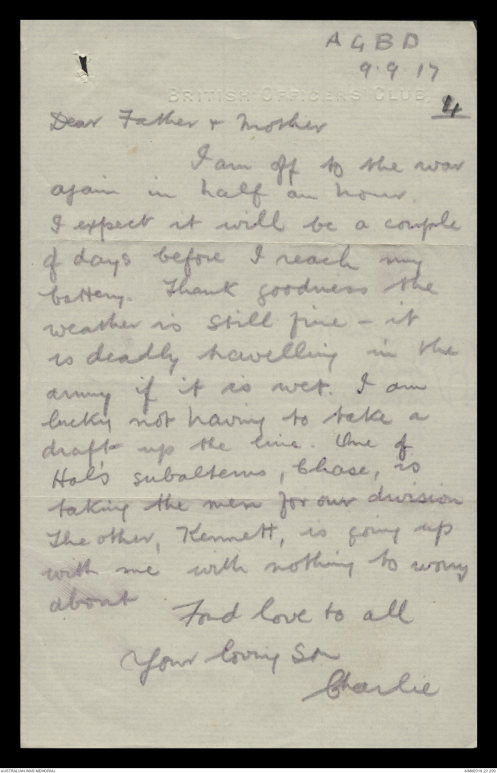 AGBD
9.9.17
BRITISH OFFICERS CLUB.
4
Dear Father & Mother
I am off to the war
again in half an hour.
I expect it will be a couple
of days before I reach my
battery. Thank goodness the
weather is still fine – it
is deadly travelling in the
army if it is wet. I am
lucky not having to take a
draft up the line. One of
Hal's subalterns, Chase, is
taking the men for our division
The other, Kennett, is going up
with me with nothing to worry
about
Fond love to all
Your loving Son
Charlie
AUSTRALIAN WAR MEMORIAL